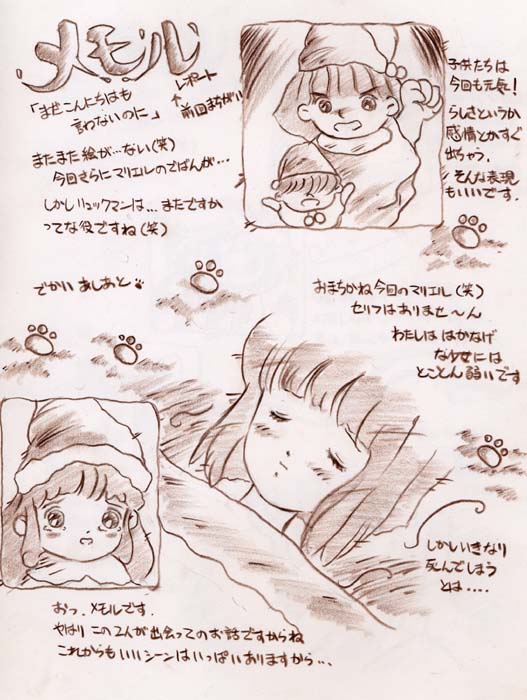 メモル
レポート
↑
前回まちがい
「まだこんにちはも
言わないのに」
またまた絵が…ない(笑)
今回さらにマリエルのでばんが…
しかしリュックマンは…またですか
ってな役ですね(笑)
子供たちは
今回も元気!
らしさというか
感情とかすぐ
出ちゃう。
そんな表現
もいいです。
でかい あしあと
おまちかね今回のマリエル(笑)
セリフはありませ〜ん
わたしは はかなげ
な少女には
とことん弱いです
しかしいきなり
死んでしまう
とは....
おっ、メモルです。
やはり この2人が出会ってのお話ですからね
これからもいいシーンはいっぱいありますから...